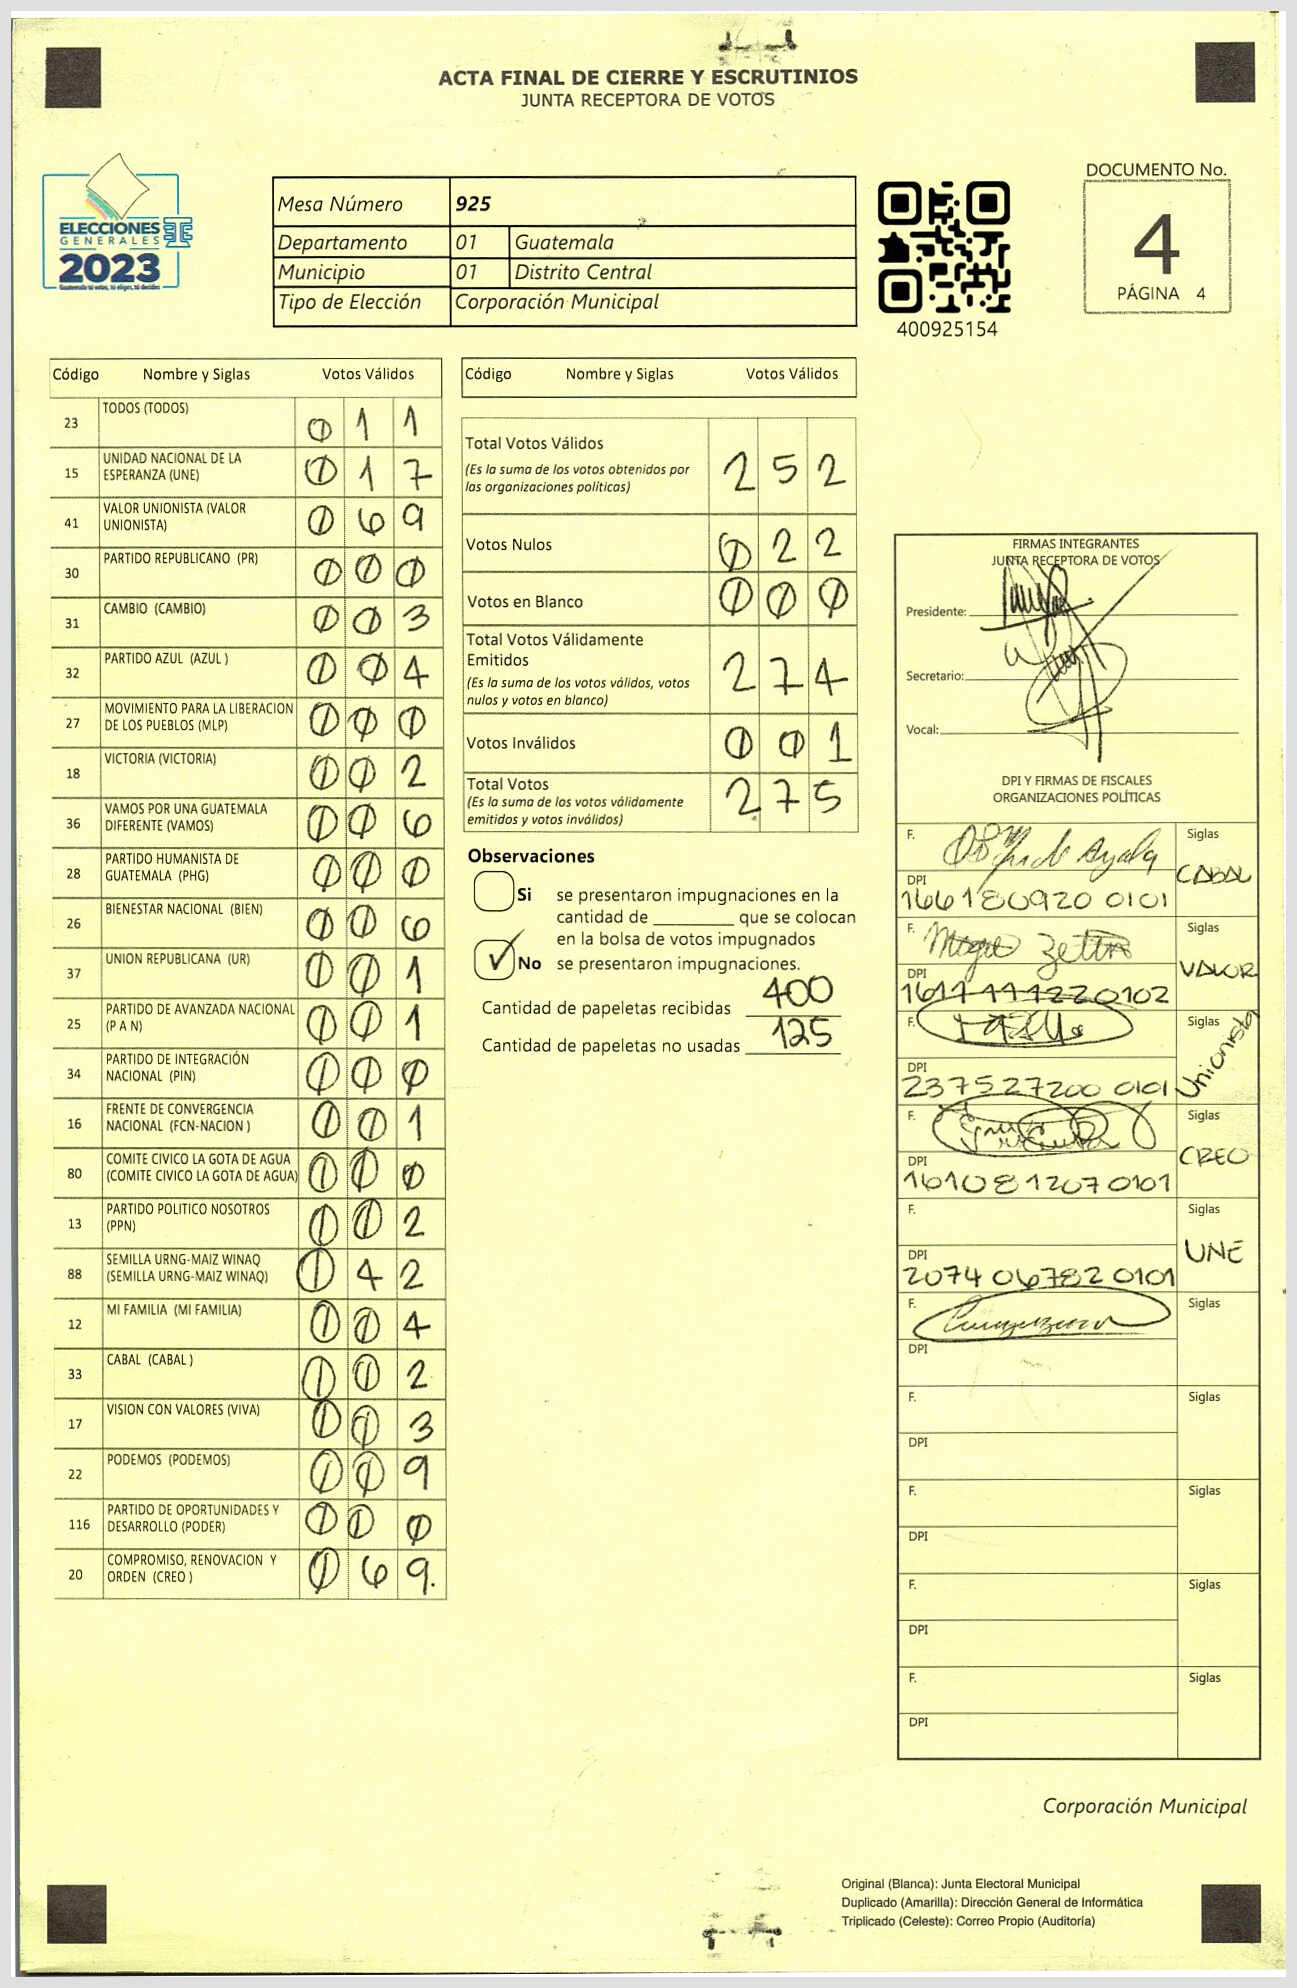 ACTA FINAL DE CIERRE Y ESCRUTINIOS
JUNTA RECEPTORA DE VOTOS
ELECCIONES
GENERALES
2023
Mesa Número 925
Departamento 01 Guatemala
Municipio 01 Distrito Central
Tipo de Elección Corporación Municipal
400925154
DOCUMENTO No.
4
PÁGINA 4
Código Nombre y Siglas Votos Válidos
23 TODOS (TODOS) 0 1 1
15 UNIDAD NACIONAL DE LA
ESPERANZA (UNE) 0 1 7
41 VALOR UNIONISTA (VALOR
UNIONISTA) 0 6 9
30 PARTIDO REPUBLICANO (PR) 0 0 0
31 CAMBIO (CAMBIO) 0 0 3
32 PARTIDO AZUL (AZUL ) 0 0 4
27 MOVIMIENTO PARA LA LIBERACION
DE LOS PUEBLOS (MLP) 0 0 0
18 VICTORIA (VICTORIA) 0 0 2
36 VAMOS POR UNA GUATEMALA
DIFERENTE (VAMOS) 0 0 6
28 PARTIDO HUMANISTA DE
GUATEMALA (PHG) 0 0 0
26 BIENESTAR NACIONAL (BIEN) 0 0 6
37 UNION REPUBLICANA (UR) 0 0 1
25 PARTIDO DE AVANZADA NACIONAL
(P A N) 0 0 1
34 PARTIDO DE INTEGRACIÓN
NACIONAL (PIN) 0 0 0
16 FRENTE DE CONVERGENCIA
NACIONAL (FCN-NACION ) 0 0 1
80 COMITE CIVICO LA GOTA DE AGUA
(COMITE CIVICO LA GOTA DE AGUA) 0 0 0
13 PARTIDO POLITICO NOSOTROS
(PPN) 0 0 2
88 SEMILLA URNG-MAIZ WINAQ
(SEMILLA URNG-MAIZ WINAQ) 0 4 2
12 MI FAMILIA (MI FAMILIA) 0 0 4
33 CABAL (CABAL ) 0 0 2
17 VISION CON VALORES (VIVA) 0 0 3
22 PODEMOS (PODEMOS) 0 0 9
116 PARTIDO DE OPORTUNIDADES Y
DESARROLLO (PODER) 0 0 0
20 COMPROMISO, RENOVACION Y
ORDEN (CREO ) 0 6 9.
Código Nombre y Siglas Votos Válidos
Total Votos Válidos 2 5 2
(Es la suma de los votos obtenidos por
las organizaciones políticas)
Votos Nulos 0 2 2
Votos en Blanco 0 0 0
Total Votos Válidamente
Emitidos 2 7 4
(Es la suma de los votos válidos, votos
nulos y votos en blanco)
Votos Inválidos 0 0 1
Total Votos 2 7 5
(Es la suma de los votos válidamente
emitidos y votos inválidos)
Observaciones
Si se presentaron impugnaciones en la
cantidad de ________ que se colocan
en la bolsa de votos impugnados
No se presentaron impugnaciones.
Cantidad de papeletas recibidas 400
Cantidad de papeletas no usadas 125
FIRMAS INTEGRANTES
JUNTA RECEPTORA DE VOTOS
Presidente:
Secretario:
Vocal:
DPI Y FIRMAS DE FISCALES
ORGANIZACIONES POLÍTICAS
F. Siglas
CABAL
DPI
166180920 0101
F. Siglas
VALOR
DPI
F. Siglas
Unionista
DPI
237527200 0101
F. Siglas
CREO
DPI
1610812070101
F. Siglas
UNE
DPI
2074 06782 0101
F. Siglas
DPI
F. Siglas
DPI
F. Siglas
DPI
F. Siglas
DPI
F. Siglas
DPI
Corporación Municipal
Original (Blanca): Junta Electoral Municipal
Duplicado (Amarilla): Dirección General de Informática
Triplicado (Celeste): Correo Propio (Auditoría)